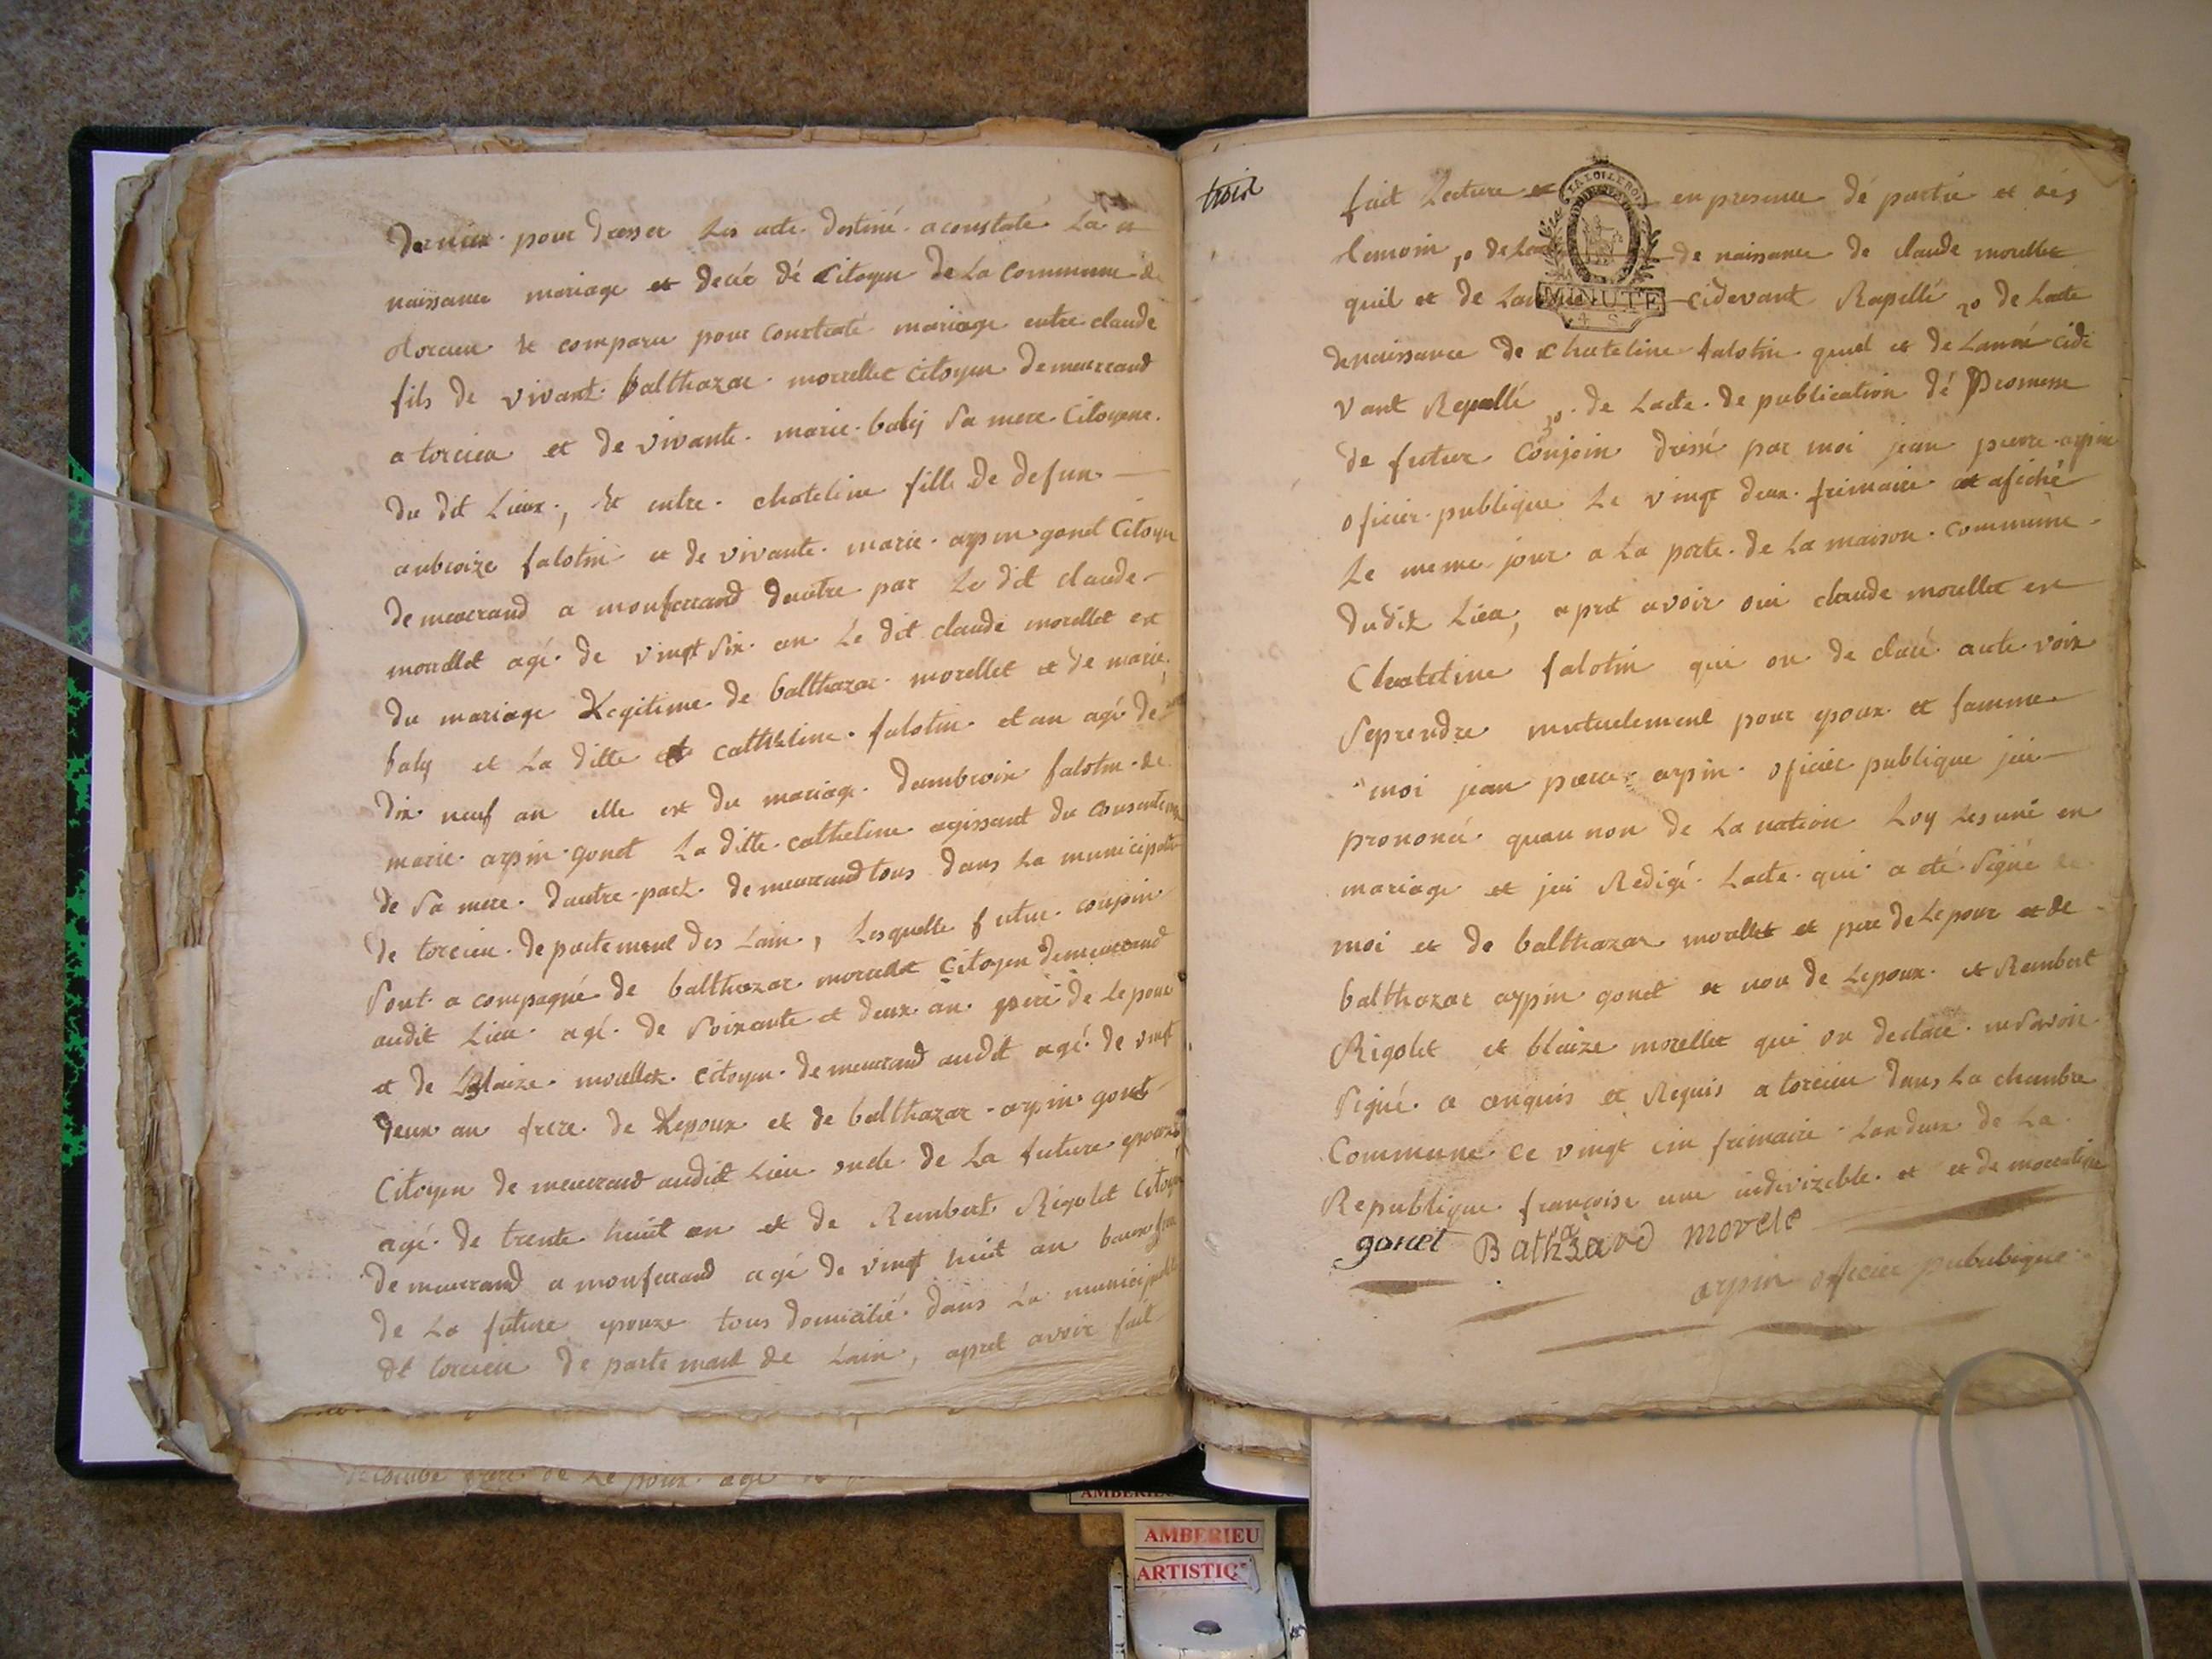 dernier pour dresser les acte destiné a constaté la n
naissance mariage et decée dé Citoyen de la Commune de
torcieu et comparu pour Contraté mariage entre claude
fils de vivant balthazar morrellet Citoyen demeurrand
a torcieu et de vivante marie baly sa mere Citoyene
du dit Lieux, et entre chateline fille de defun
anbroize falotin et de vivante marie arpin gonet Citoyen
demeurrand a monferrand dautre par le dit claude
morrellet agé de vingt six an le dit claude morellet est
du mariage Legitime de balthazar morellet et de marie
baly et la ditte et catheline falotin etan agé de
dix neuf an elle est du mariage dambroix falotin de
marie arpin gonet la ditte catheline agissant du consentement
de sa mere dautre part demeurrand tous dans la municipalité
de torcieu departement des Lain, lesquelle futur conjoin
sont acompagné de balthazar morrellet Citoyen demeurrand
audit Lieu agé de soixante et deux an pere de lepoux
et de blaize morellet citoyen demeurrand audit agé de vingt
deux an frere de Lepoux et de balthazar arpin gonet
Citoyen demeurrand audit Lieu oncle de la future epouze
agé de trente huit an et de Rembert Rigolet Citoyen
demeurrand a monferrand agé de vingt huit an beau frere
de la future epouze tous domicilié dans la municipalité
de torcieu departemant de Lain, apret avoir fait
troix
fait Lecture en presence dé partie et dés
temoin, 1o de Lacte de naissance de claude morellet
quil et de Lannée cidevant Rapellé 2o de Lacte
de naissance de chateline falotin quil et de Lannée cide
vant Repellé 3o de Lacte de publication dé Promesse
de futur Conjoin dressé par moi jean pierre arpin
oficier publique Le vingt deux frimaire et afiché
Le meme jour a La porte de La maison commune
dudit Lieu, apret avoir oui claude morellet et
Chateline falotin qui on declaré aute voix
Seprendre mutuelement pour epoux et famme
moi jean pierre arpin oficier publique jai
prononcé quau non de La nation Loy Les uni en
mariage et jai Redigé Lacte qui a été Signé de
moi et de balthazar morellet et pere de Lepoux et de
balthazar arpin gonet et non de Lepoux et Rembert
Rigolet et blaize morellet qui on declaré ne savoir
Signé a enquis et Requis a torcieu dans La chanbre
Commune ce vingt cin frimaire Lan deux de La
Republique françoise une indivizible et
gonet Bathazard morele
arpin oficier pububique
LA LOI LE ROI
MINUTE
4 S
AMBERIEU
AMBERIEU
ARTISTIQ